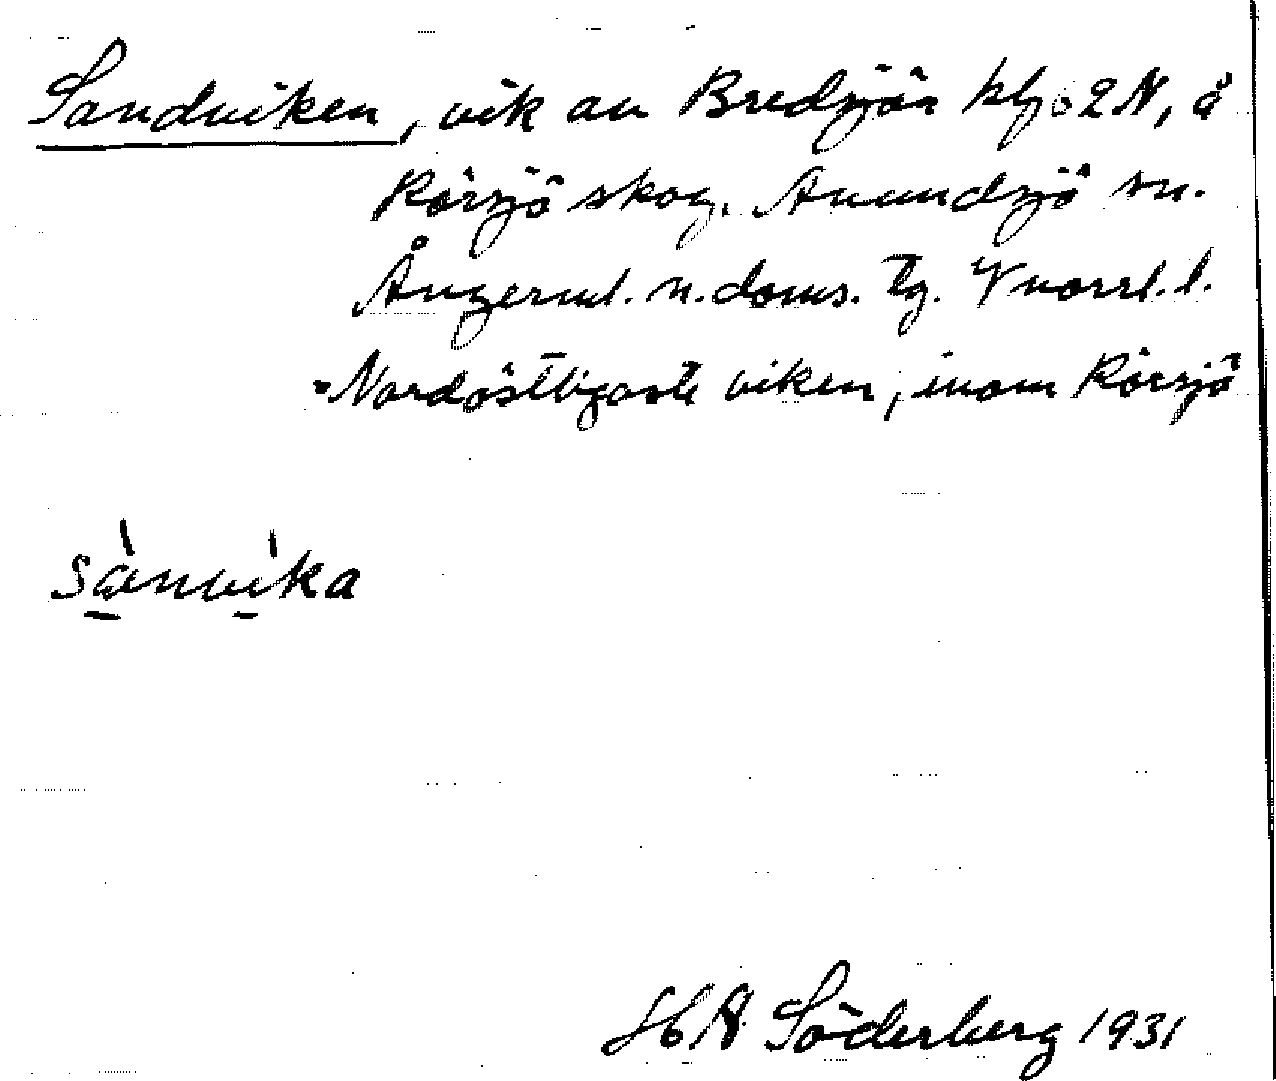 Sandviken, vik av Bredsjön hfj 62N, å
Rörsjö skog. Anundsjö sn.
Ångerml. n. doms. tg. Vnorrl. l.
Nordöstligaste viken, inom Rörsjö
sànvìka
H A Söderberg 1931